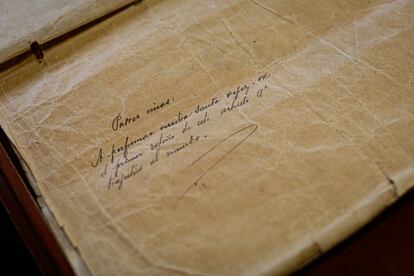 Padres mios.
A perfumar vuestra santa vejez. va
el primer retoño de este arbusto qe
trajisteis al mundo.